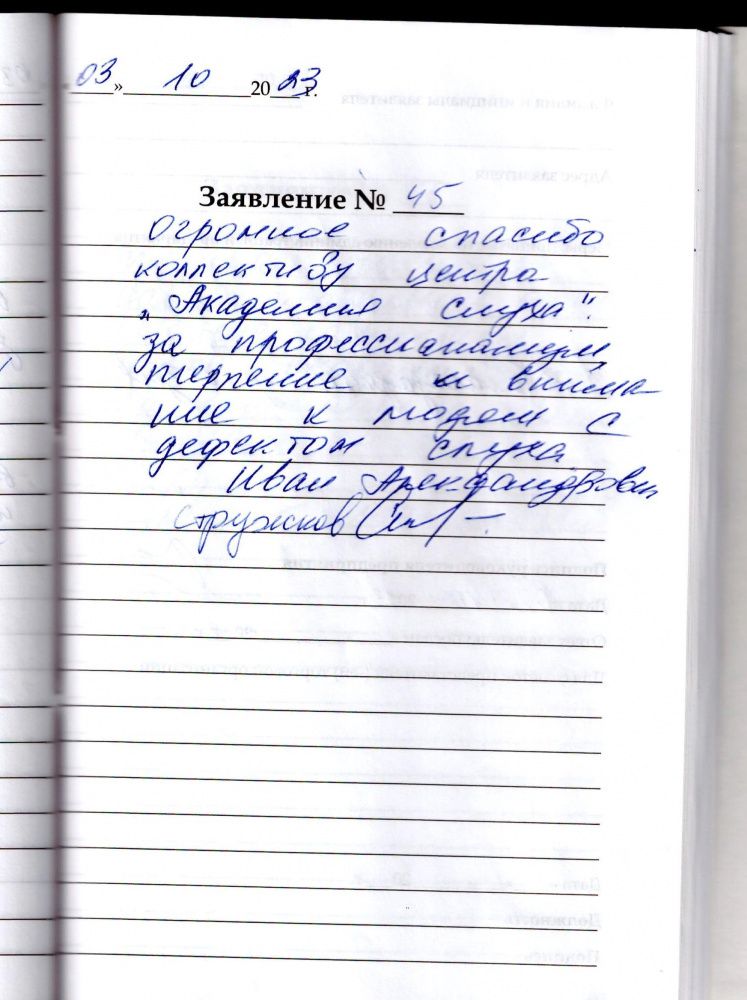 03» 10 2023 г.
Заявление № 45
Огромное спасибо
коллективу центра
„Академия слуха".
за профессионализм
терпение и внима-
ние к людям с
дефектом слуха
Иван Александрович
Стружков